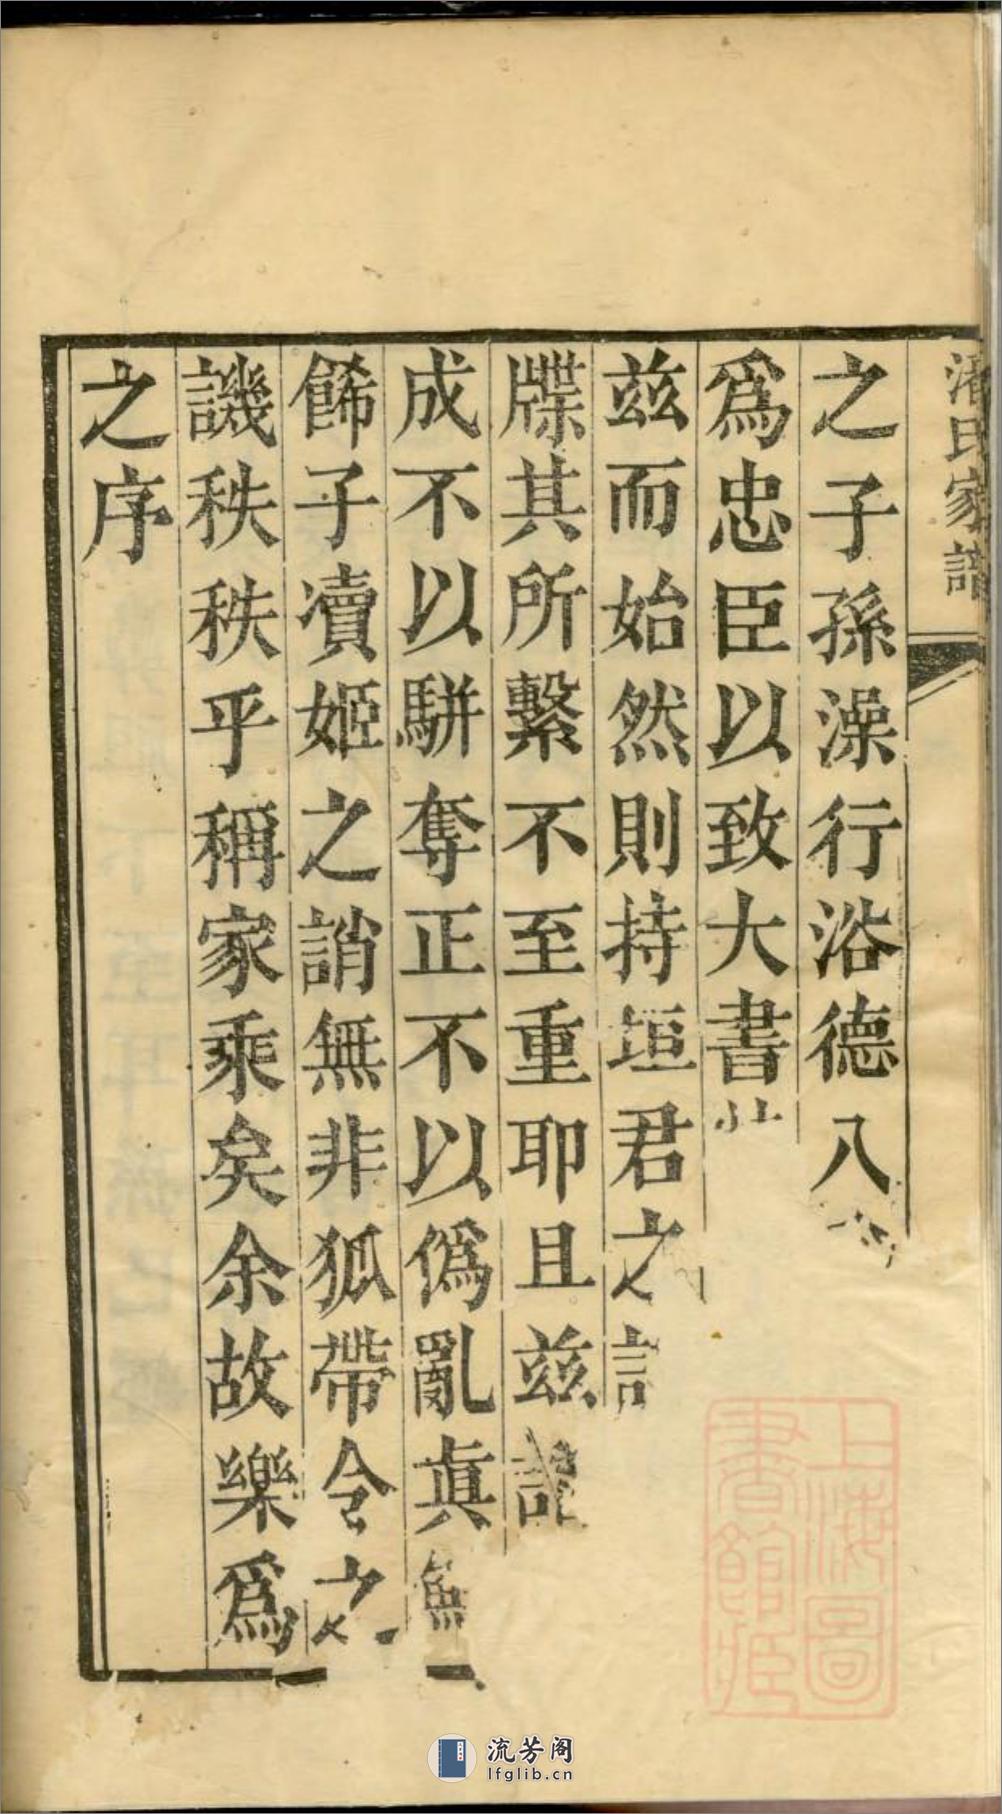 潘氏家譜
之子孫澡行浴德八
爲忠臣以致大書
兹而始然則持垣君之
牒其所繫不至重耶且兹譜
成不以駢奪正不以僞亂眞無
餙子凟姬之誚無非狐帶令之
譏秩秩乎稱家乘矣余故樂爲
之序
上海圖
書館藏
流芳阁
lfglib.cn